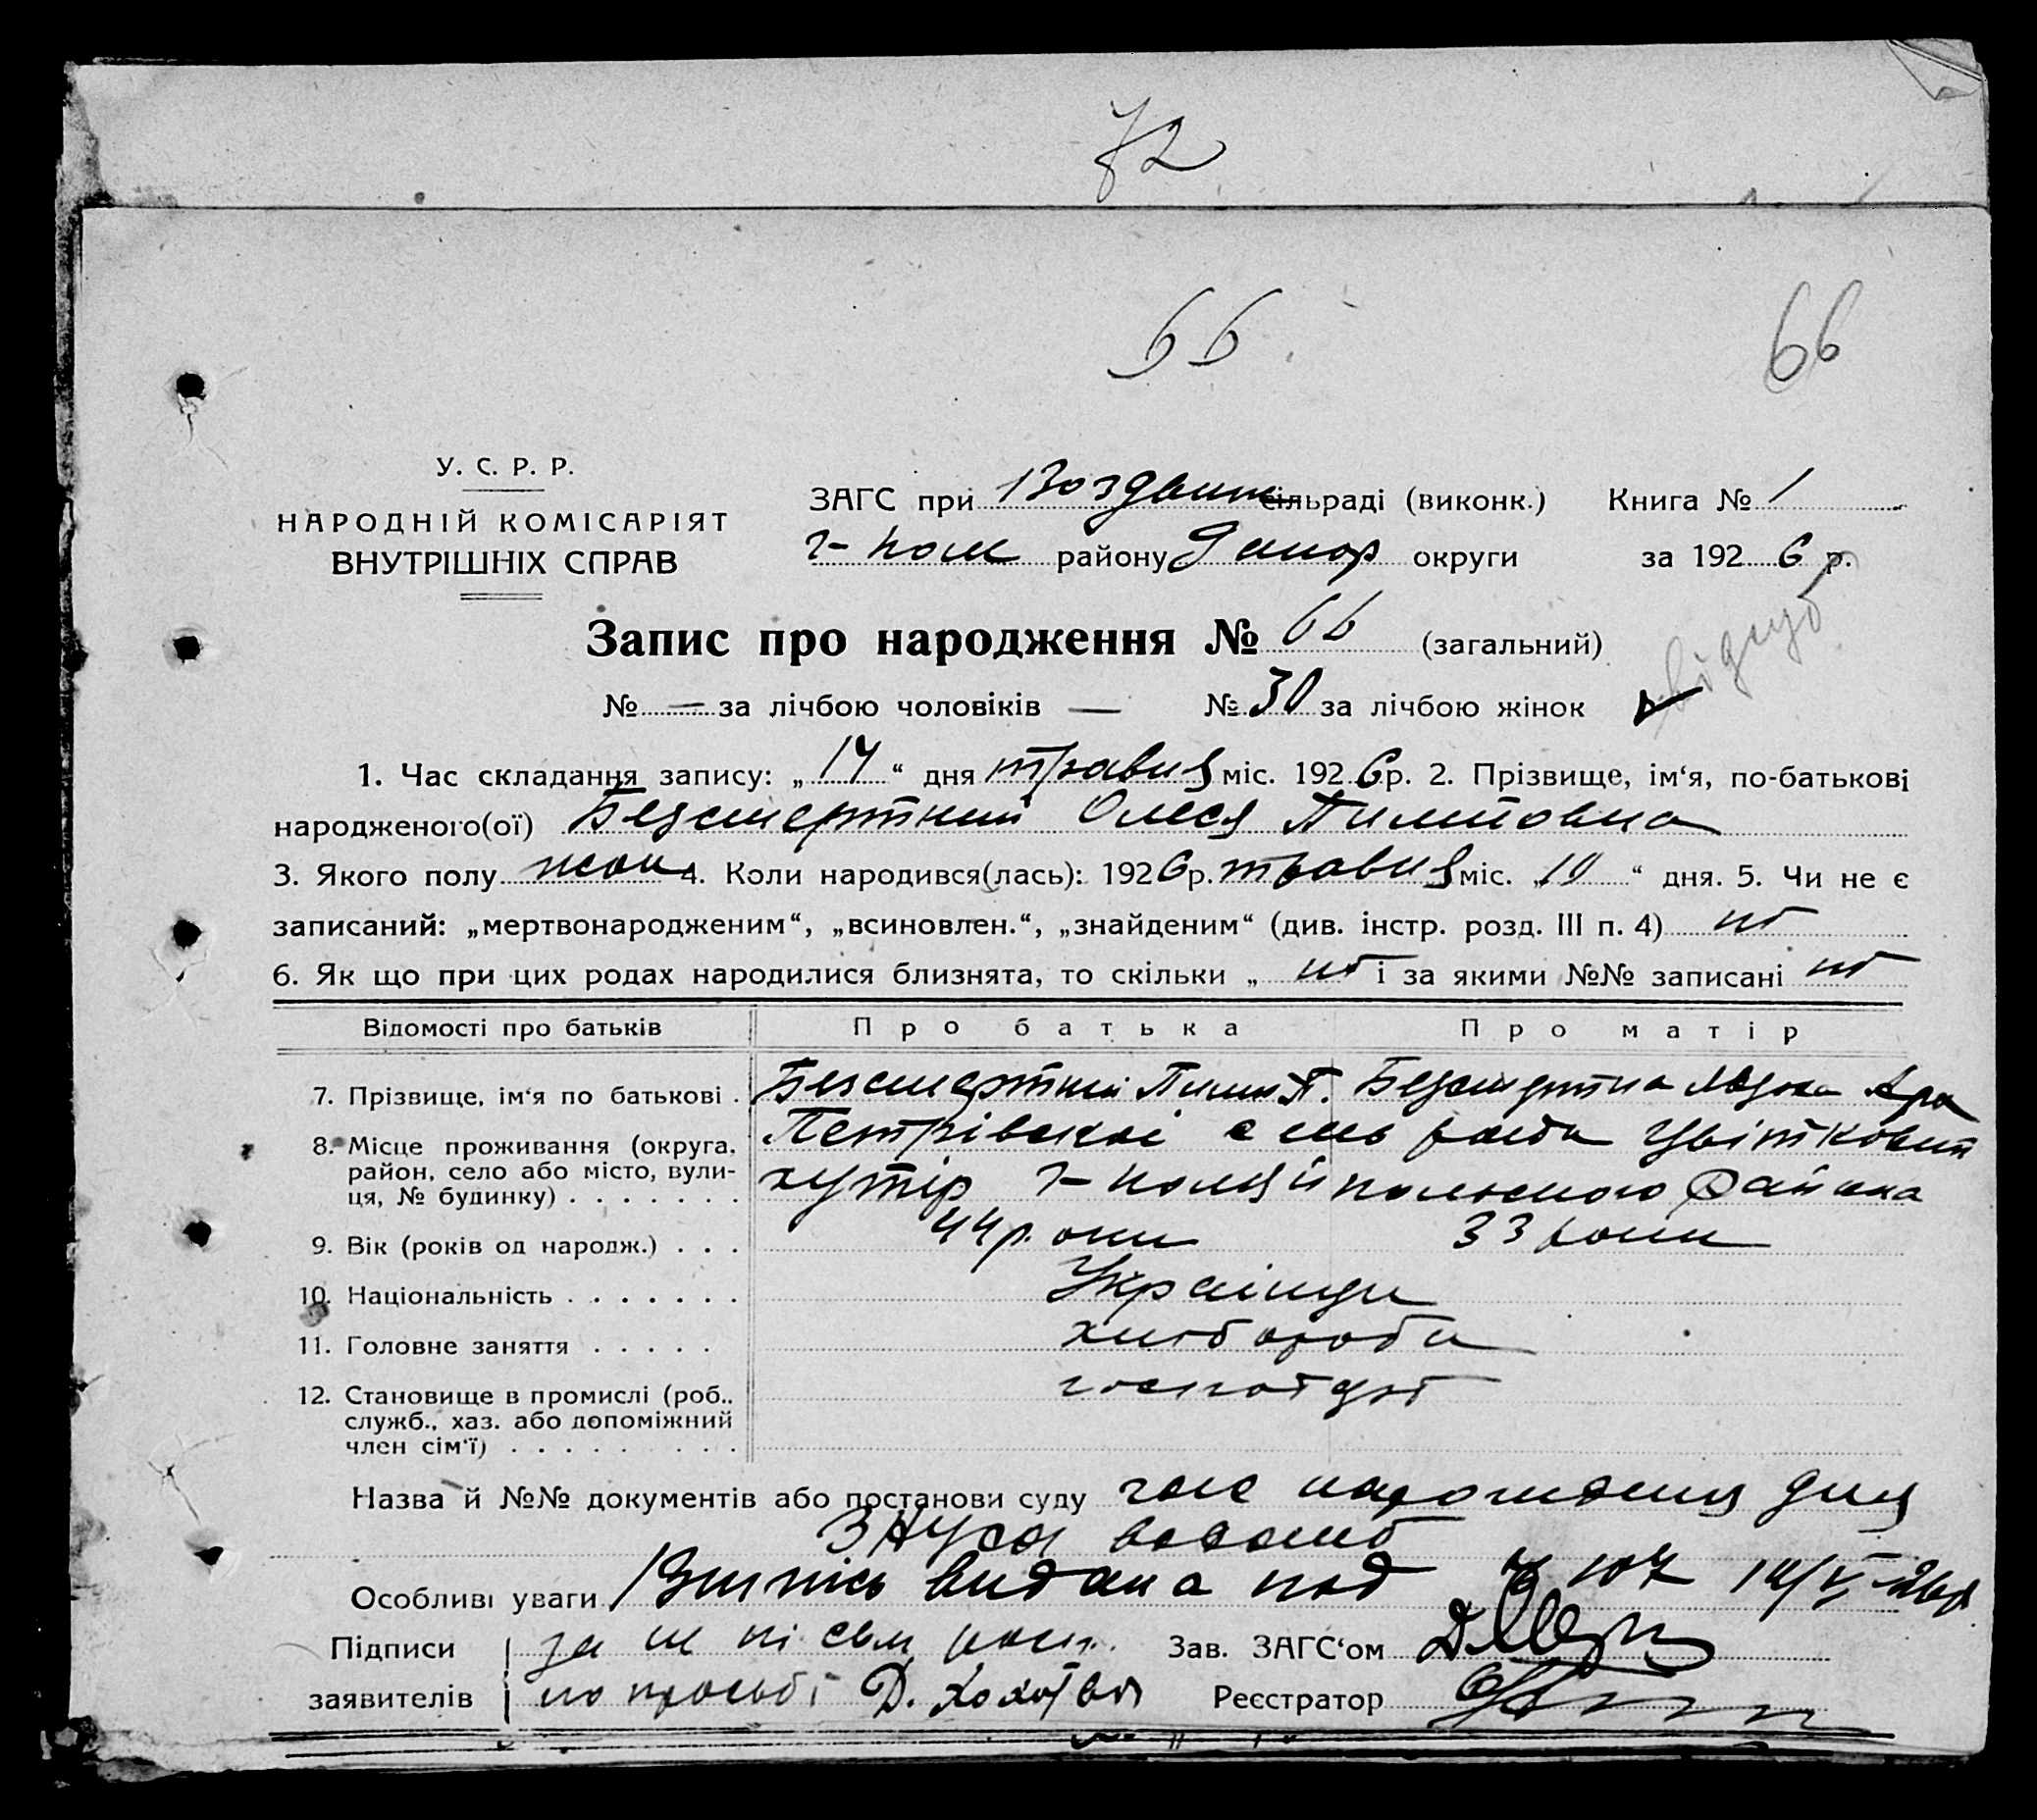 72
66
66
У. С. Р. Р.
НАРОДНІЙ КОМІСАРІЯТ
ВНУТРІШНІХ СПРАВ
ЗАГС при Воздвиж сільраді (виконк.) Книга № 1
г-пол району Запор округи за 1926 р.
Запис про народження № 66 (загальний)
№ — за лічбою чоловіків — № 30 за лічбою жінок
1. Час складання запису: „14“ дня травня міс. 1926 р. 2. Прізвище, ім‘я, по-батькові
народженого(ої) Безсмертний Олеся Пилиповна
3. Якого полу жон 4. Коли народився(лась): 1926 р. травня міс. „10“ дня. 5. Чи не є
записаний: „мертвонародженим“, „всиновлен.“, „знайденим“ (див. інстр. розд. III п. 4) нт
6. Як що при цих родах народилися близнята, то скільки „ нт і за якими №№ записані нт
Відомості про батьків Про батька Про матір
7. Прізвище, ім‘я по батькові . Безсмертний Пилип П. Безсмертна
8. Місце проживання (округа, Петрівскої сель ради Цвітковий
район, село або місто, вули- хутір г-поляйпольского Района
ця, № будинку) . . . . . . .
9. Вік (років од народж.) . . . 44 р. оки 33 роки
10. Національність . . . . . . . Українци
11. Головне заняття . . . . . хлібороби
12. Становище в промислі (роб.,
служб., хаз. або допоміжний
член сім‘ї) . . . . . . . . .
Назва й №№ документів або постанови суду
Особливі уваги Випись видана под № 107 14/V-26р
Підписи за не пісьм росп. Зав. ЗАГС‘ом
заявителів по прозьбі Д. Реєстратор